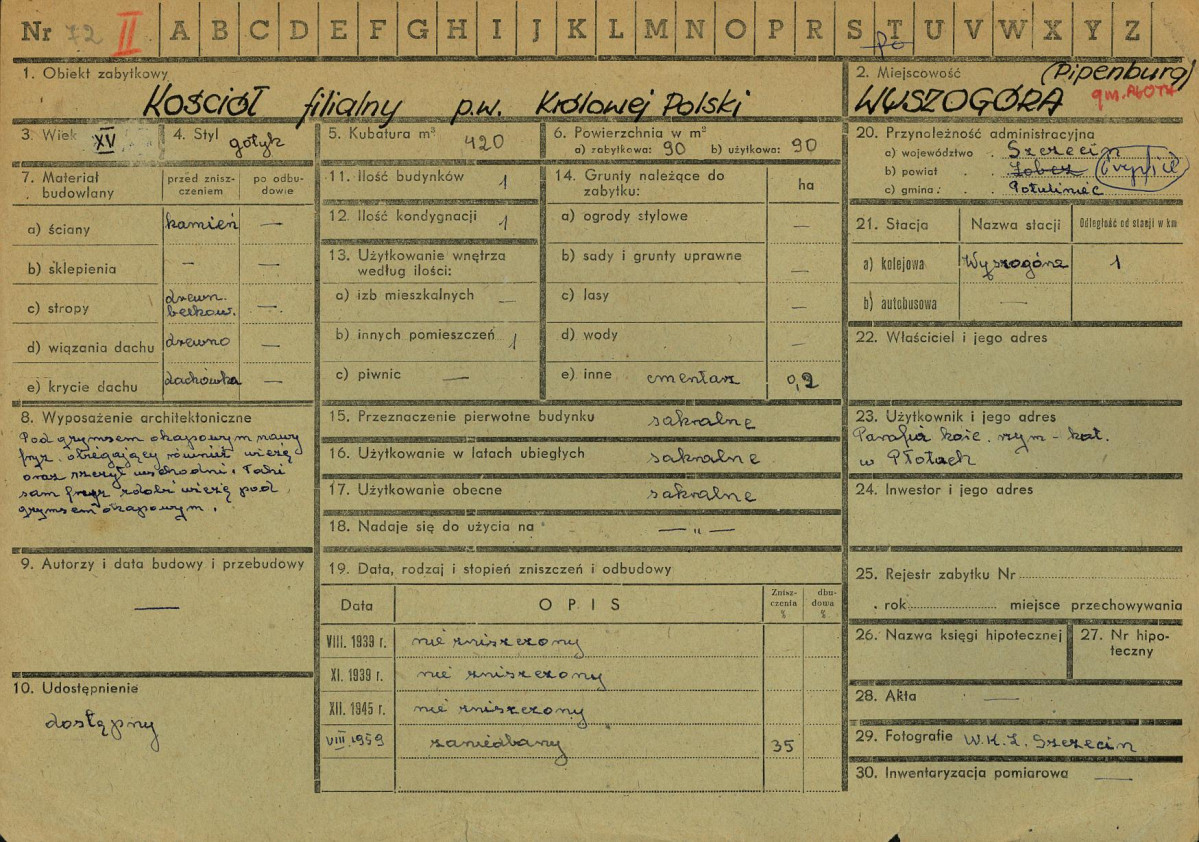 Nr 72 II A B C D E F G H I J K L M N O P R S T U V W X Y Z
1. Obiekt zabytkowy
Kościół filialny p.w. Królowej Polski
2. Miejscowość (Pipenburg)
WYSZOGÓRA gm. PŁOTY
3. Wiek XV
4. Styl gotyk
5. Kubatura m³ 420
6. Powierzchnia w m²
a) zabytkowa: 90 b) użytkowa: 90
20. Przynależność administracyjna
a) województwo . Szczecin
b) powiat . . Łobez Gryfice
c) gmina: . . Potuliniec
7. Materiał budowlany
przed zniszczeniem
po odbudowie
a) ściany kamień —
b) sklepienia — —
c) stropy drewn. belkow. —
d) wiązania dachu drewno —
e) krycie dachu dachówka —
11. Ilość budynków 1
12. Ilość kondygnacji 1
13. Użytkowanie wnętrza
według ilości:
a) izb mieszkalnych —
b) innych pomieszczeń 1
c) piwnic —
14. Grunty należące do
zabytku: ha
a) ogrody stylowe —
b) sady i grunty uprawne —
c) lasy —
d) wody —
e) inne cmentarz 0,2
21. Stacja Nazwa stacji Odległość od stacji w km
a) kolejowa Wyszogóra 1
b) autobusowa —
22. Właściciel i jego adres
8. Wyposażenie architektoniczne
Pod gzymsem okapowym nawy
fryz. obiegający również wieżę
oraz szczyt wschodni. Taki
sam fryz zdobi wieżę pod
gzymsem okapowym.
15. Przeznaczenie pierwotne budynku sakralne
16. Użytkowanie w latach ubiegłych sakralne
17. Użytkowanie obecne sakralne
18. Nadaje się do użycia na — „ —
23. Użytkownik i jego adres
Parafia kośc. rzym-kat.
w Płotach
24. Inwestor i jego adres
9. Autorzy i data budowy i przebudowy
—
10. Udostępnienie
dostępny
19. Data, rodzaj i stopień zniszczeń i odbudowy
Data OPIS Zniszczenia % dbudowa %
VIII. 1939 r. nie zniszczony
XI. 1939 r. nie zniszczony
XII. 1945 r. nie zniszczony
VIII. 1959 zaniedbany 35
25. Rejestr zabytku Nr
. rok miejsce przechowywania
26. Nazwa księgi hipotecznej
27. Nr hipoteczny
28. Akta —
29. Fotografie W.K.Z. Szczecin
30. Inwentaryzacja pomiarowa —